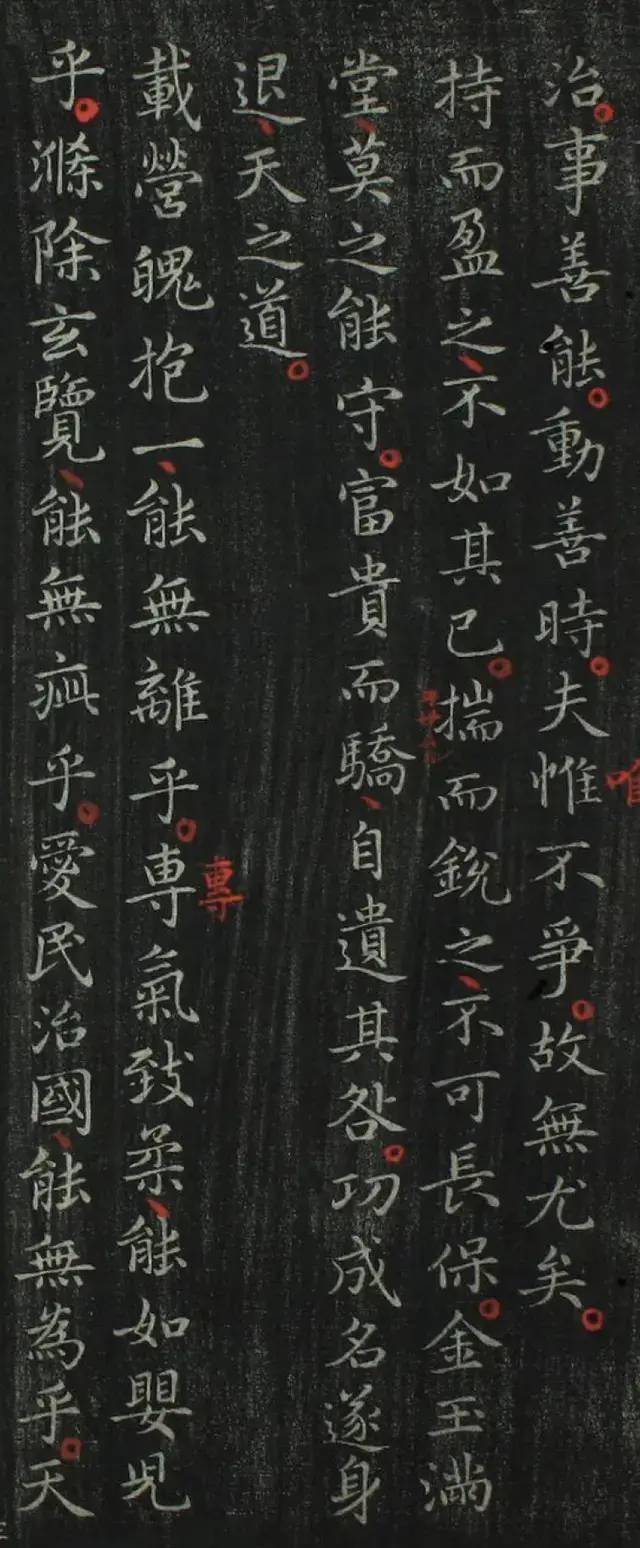 治。事善能。動善時。夫惟不爭。故無尤矣。
唯
持而盈之、不如其已。揣而銳之、不可長保。金玉滿
堂、莫之能守。富貴而驕、自遺其咎。功成名遂身
退、天之道。
載營魄抱一、能無離乎。專氣致柔、能如嬰兒
專
乎。滌除玄覽、能無疵乎。愛民治國、能無為乎。天